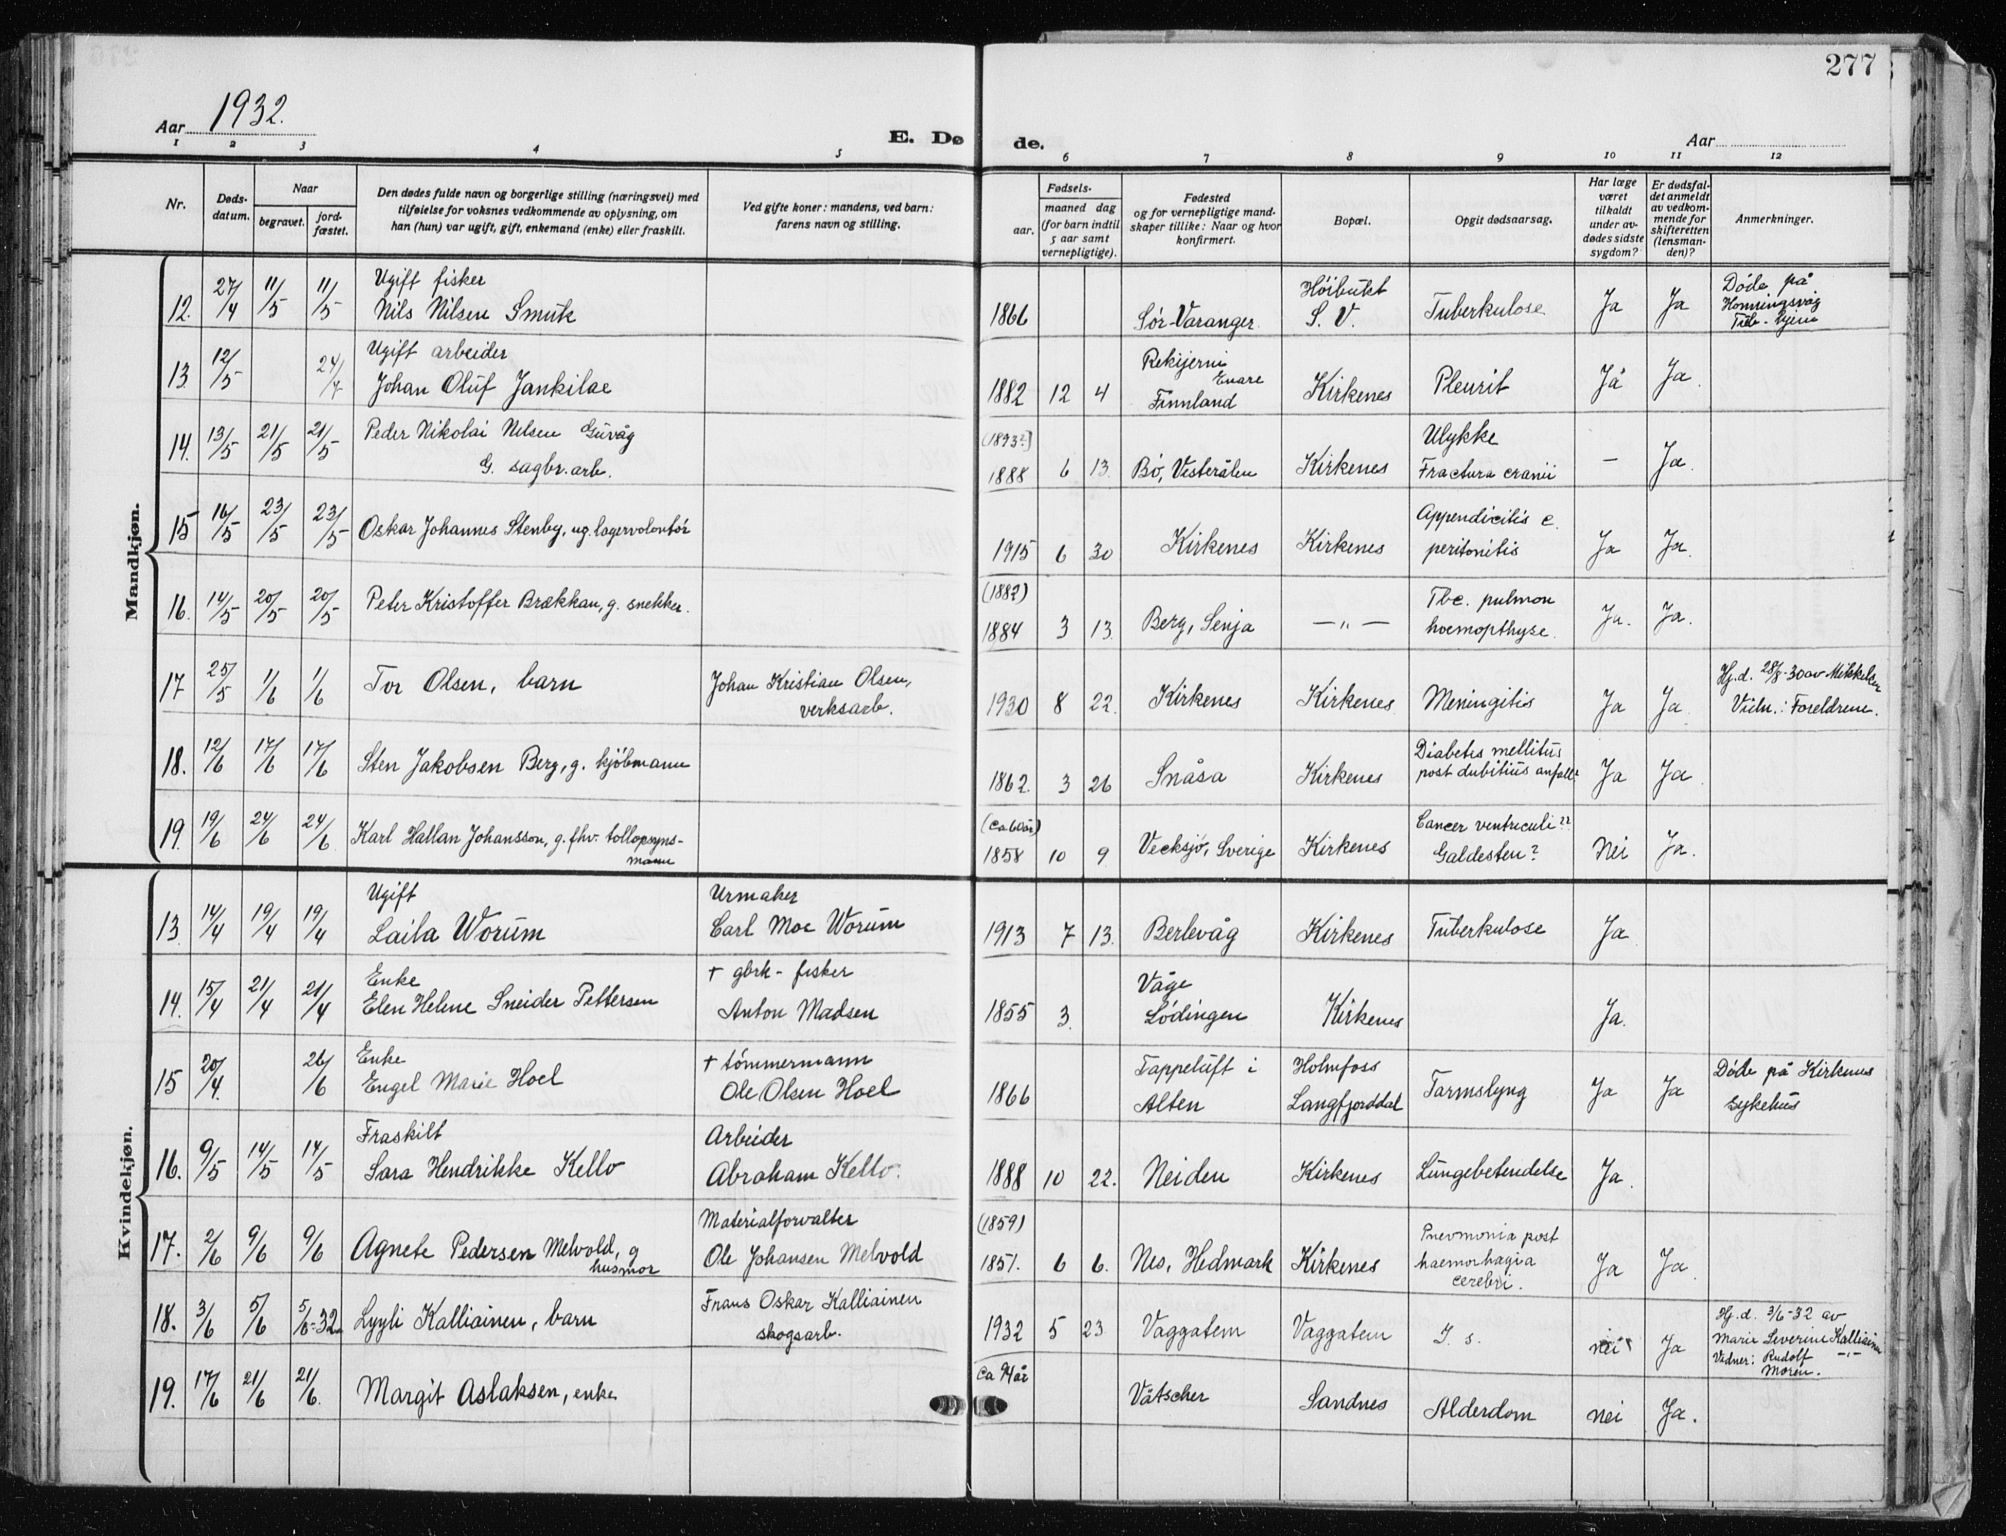 277
Aar 1932.
E. Døde.
Aar
1 2 3 4 5 6 7 8 9 10 11 12
Nr.
Døds-
datum.
Naar
begravet.
jord-
fæstet.
Den dødes fulde navn og borgerlige stilling (næringsvei) med
tilføielse for voksnes vedkommende av oplysning, om
han (hun) var ugift, gift, enkemand (enke) eller fraskilt.
Ved gifte koner: mandens, ved barn:
farens navn og stilling.
Fødsels-
aar.
maaned dag
(for barn indtil
5 aar samt
vernepligtige).
Fødested
og for vernepligtige mand-
skaper tillike: Naar og hvor
konfirmert.
Bopæl.
Opgit dødsaarsag.
Har læge
været
tilkaldt
under av-
dødes sidste
sygdom?
Er dødsfal-
det anmeldt
av vedkom-
mende for
skifteretten
(lensman-
den)?
Anmerkninger.
Mandkjøn.
12. 27/4 11/5 11/5 Ugift fisker
Nils Nilsen Smuk
1866 Sør-Varanger Høibukt
S. V. Tuberkulose Ja Ja Døde på
Honningsvåg
13 12/5 24/7 Ugift arbeider
Johan Oluf Jankilae
1882 12 4 Rekijerni
Enare
Finnland Kirkenes Pleurit Ja Ja
14. 13/5 21/5 21/5 Peder Nikolai Nilsen Guvåg
G. sagbr. arb.
(1893?)
1888 6 13. Bø, Vesterålen Kirkenes Ulykke
Fractura cranii — Ja.
15 16/5 23/5 23/5 Oskar Johannes Stenby, ug. lagervolontør
1915 6 30 Kirkenes Kirkenes Appendicitis c.
peritonitis Ja Ja.
16. 14/5 20/5 20/5 Peter Kristoffer Brækkan, g. snekker.
(1882)
1884 3 13. Berg, Senja —„— Tbc. pulmon
hoemopthyse. Ja. Ja.
17 25/5 1/6 1/6 Tor Olsen, barn Johan Kristian Olsen,
verksarb.
1930 8 22. Kirkenes Kirkenes Meningitis Ja Ja. Hj.d. 28/8-30 av Mikkelsen
Vidn.: Foreldrene.
18. 12/6 17/6 17/6 Sten Jakobsen Berg, g. kjøbmann
1862. 3 26 Snåsa Kirkenes Diabetes mellitus
post dubitius anfall? Ja Ja
19. 19/6 24/6 24/6 Karl Hallan Johansson, g. fhv. tollopsyns-
mann
(ca 60 år)
1858 10 9 Vecksjø, Sverige Kirkenes Cancer ventriculi??
Galdesten? Nei Ja.
Kvindekjøn.
13. 14/4 19/4 19/4 Ugift
Laila Worum Urmaker
Carl Moe Worum
1913 7 13. Berlevåg Kirkenes Tuberkulose Ja
14. 15/4 21/4 21/4 Enke
Elen Helene Sneider Pettersen + gbrk- fisker
Anton Madsen
1855 3. Våge
Lødingen Kirkenes Ja.
15 20/4. 26/6 Enke
Engel Marie Hoel + tømmermann
Ole Olsen Hoel
1866 Tappeluft i
Alten Holmfoss
Langfjorddal Tarmslyng Ja Ja Døde på Kirkenes
Sykehus
16. 9/5 14/5 14/5 Fraskilt
Sara Hendrikke Kello Arbeider
Abraham Kello.
1888 10 22. Neiden Kirkenes Lungebetendelse Ja.
17. 2/6 9/6 9/6 Agnete Pedersen Melvold, g
husmor Materialforvalter
Ole Johansen Melvold
(1859)
1851. 6 6. Nes, Hedmark Kirkenes Pnevmonia post
haemorhagia
cerebri. Ja Ja.
18. 3/6 5/6 5/6-32 Lyyli Kalliainen, barn Frans Oskar Kalliainen
skogsarb.
1932 5 23 Vaggatem Vaggatem I s. nei Ja Hj.d. 3/6-32 av
Marie Severine Kalliainen
Vidner: Rudolf —„—
Moren.
19. 17/6 21/6 21/6. Margit Aslaksen, enke
ca 94 år Våtscher Sandnes Alderdom nei Ja.